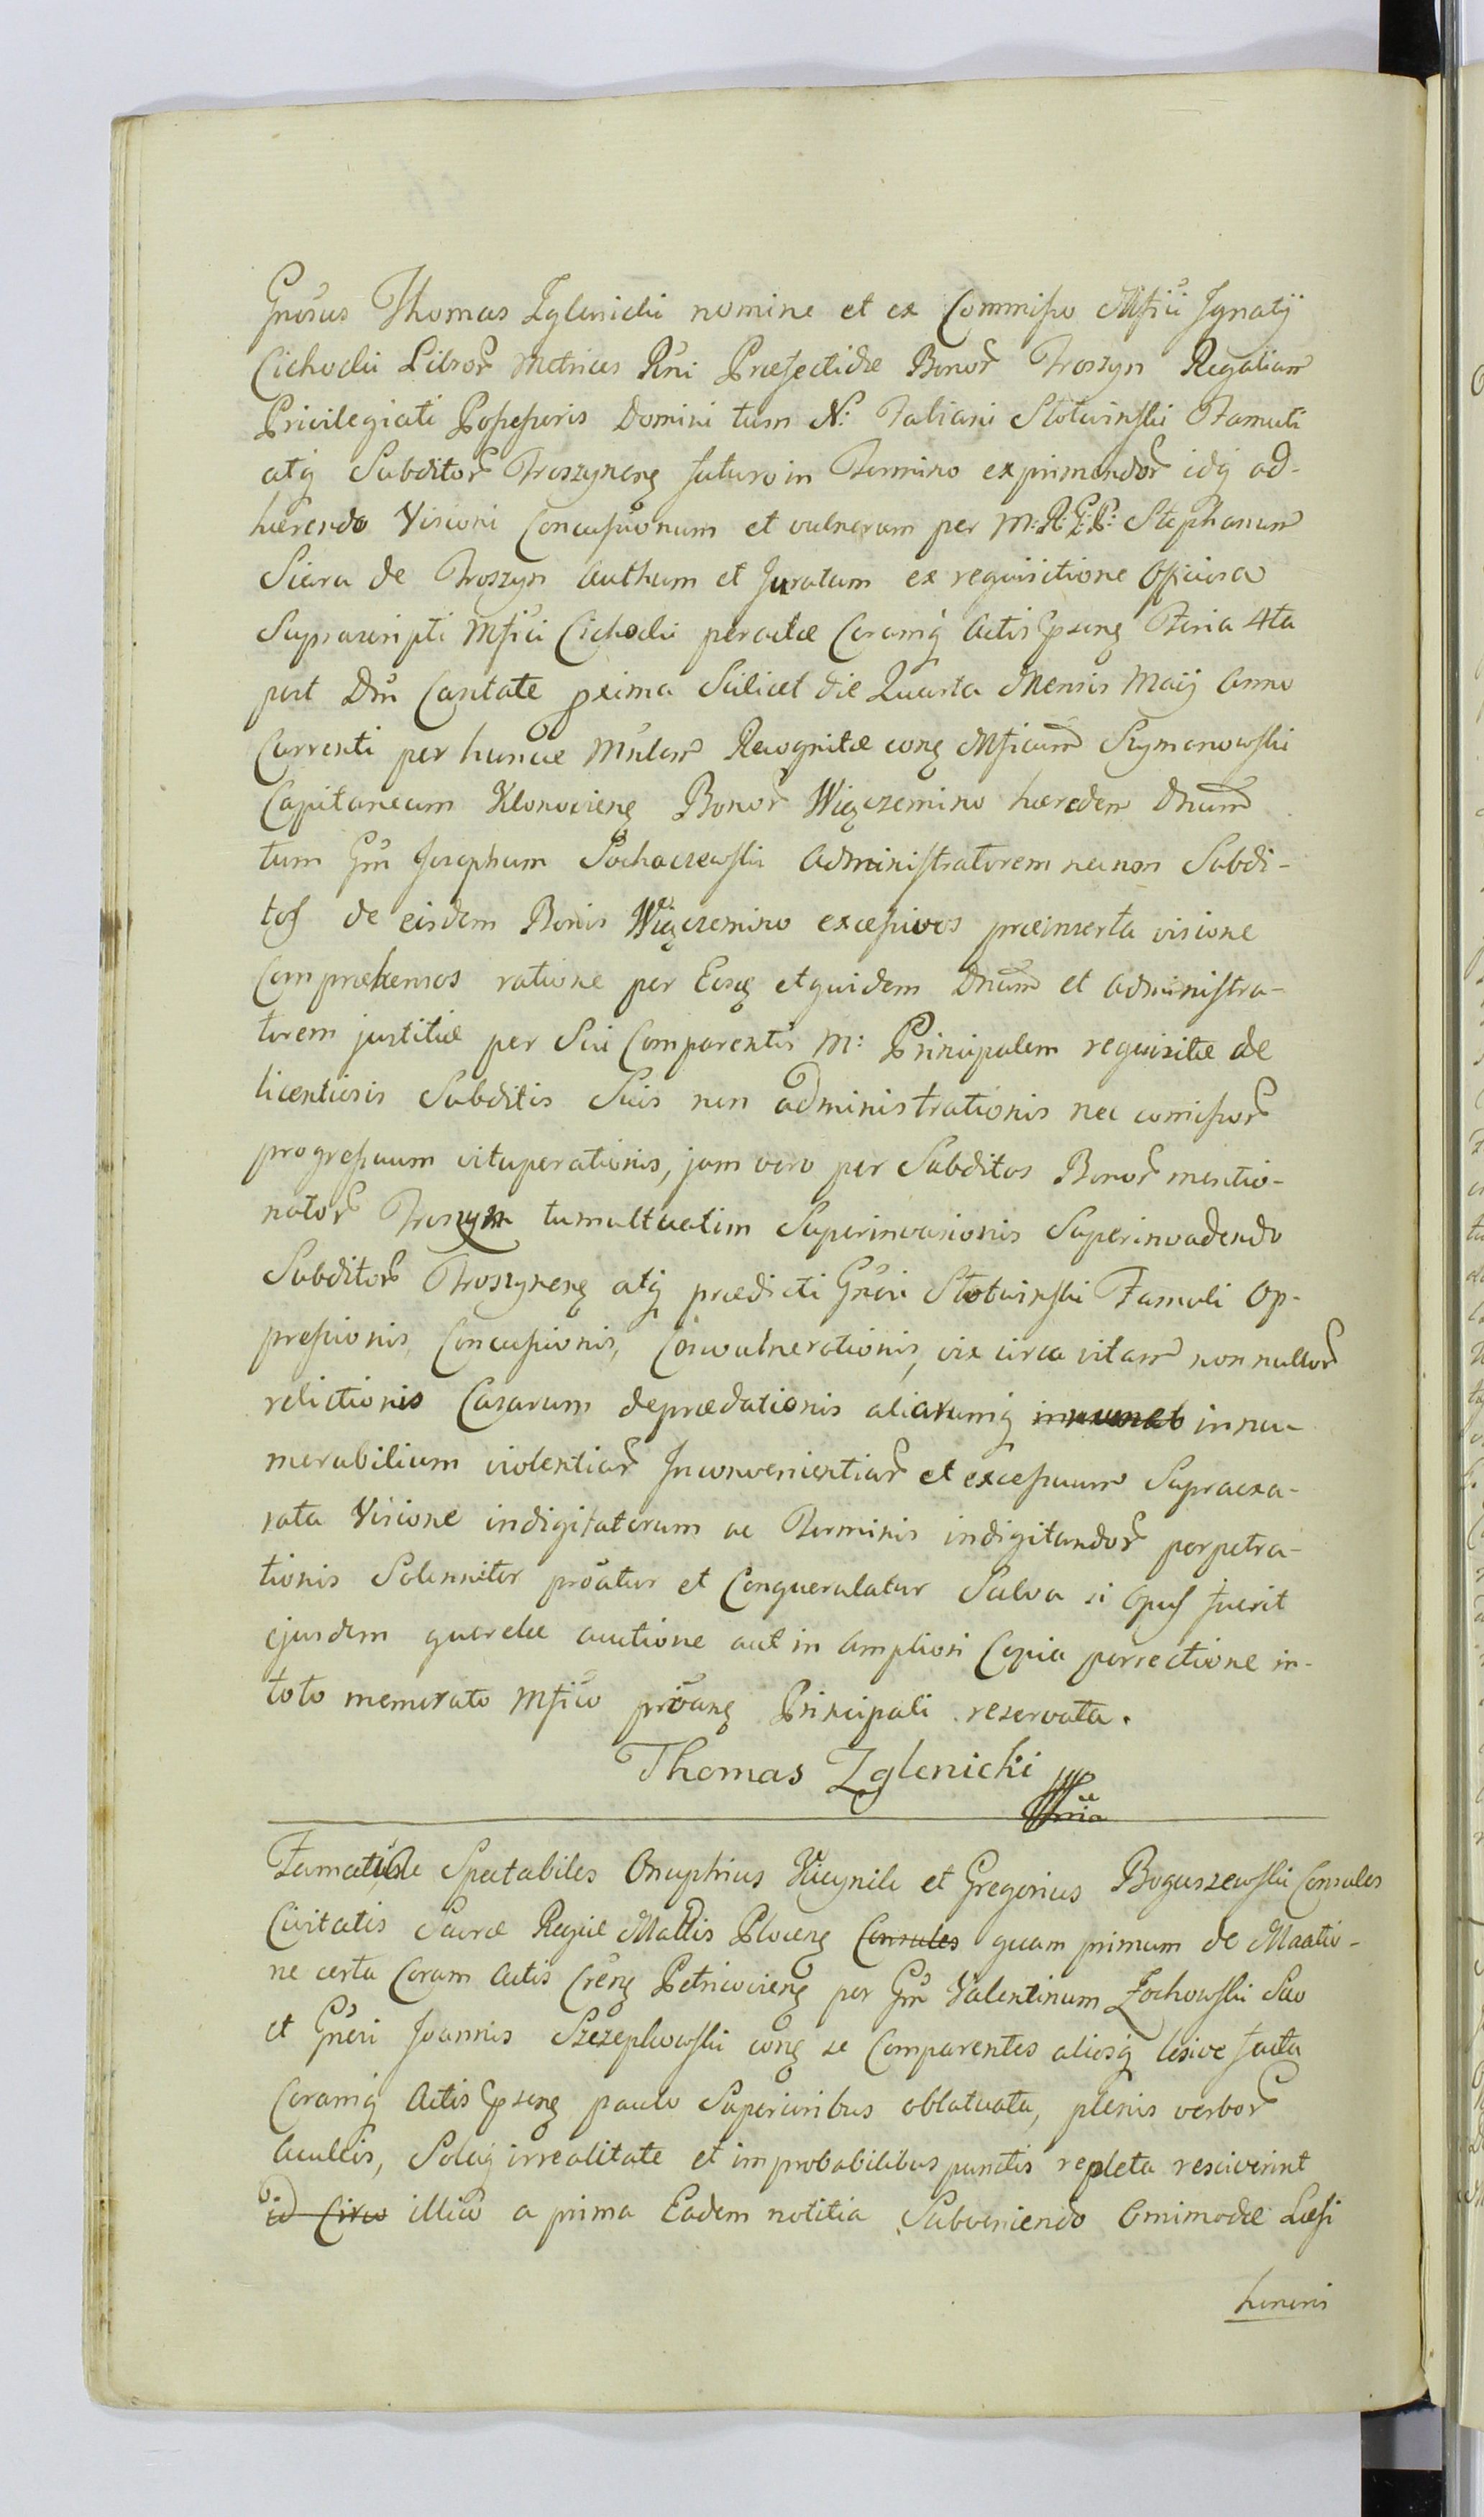 Gnosus Thomas Zglenicki nomine et ex Commisso Mfici Ignatij
Cichocki Libror Metrices Rni Præfecti &c Bonor Troszyn Regalium
Privilegiati Possessoris Domini tum N: Fabiani Słotwinski Famuli
atq Subditor Troszynens futuro in Termino exprimendor idq ad-
hærendo Visioni Concussionum et vulnerum per M: R: G: L: Stephanum
Siara de Troszyn Authum et Juratum ex requisitione Officiosa
Suprascripti Mfici Cichocki peractæ Coramq Actis Cpsens Feria 4ta
post Dm Cantate proxima Scilicet die Quarta Mensis Maij Anno
Currenti per huncce Mnlem Recognitæ cons Mficum Szymanowski
Capitaneum Klonoviens Bonor Wiączemino hæredem Dnum
tum Gm Josephum Sochaczewski Administratorem necnon Subdi-
tos de eisdem Bonis Wiączemino excessivos præinserta visione
Compræhensos ratione per Eosq et quidem Dnum et Administra-
torem justitiæ per Sui Comparentis M: Principalem requisitæ de
licentiosis Subditis Suis non administrationis nec comissor
progressuum vituperationis, jam vero per Subditos Bonor mentio-
nator Troszyn tumultuatim Superinvasionis Superinvadendo
Subditos Troszynens atq prædicti Gnosi Słotwinski Famuli Op-
pressionis, Concussionis, Convulnerationis, vix circa vitam non nullor
relictionis Casarum deprædationis aliarumq innumerab innu-
merabilium violentiar Inconvenientiar et excessuum Supraexa-
rata Visione indigitatorum ac Terminis indigitandor perpetra-
tionis Solenniter protatur et Conquerulatur Salva si opus fuerit
ejusdem querelæ auctione aut in Ampliori Copia porrectione in-
toto memorato Mfico protans Principali reservata.
Thomas Zglenicki mpp
Famati, Spectabiles Onuphrius Kucynik et Gregorius Boguszewski Consules
Civitatis Sacræ Regiæ Mattis Plocens Consules quam primum de Maatio-
ne certa Coram Actis Crens Petricoviens per Gm Valentinum Zochowski Suo
et Gnosi Joannis Szczepkowski cons se Comparentes aliosq lesive facta
Coramq Actis Cpsens paulo Superioribus oblatuata, plenis verbor
Aculeis, Solaq irrealitate et improbabilibus punctis repleta resciverint
id Circo illico a prima Eadem notitia Subveniendo Omimodæ Læsi
honoris